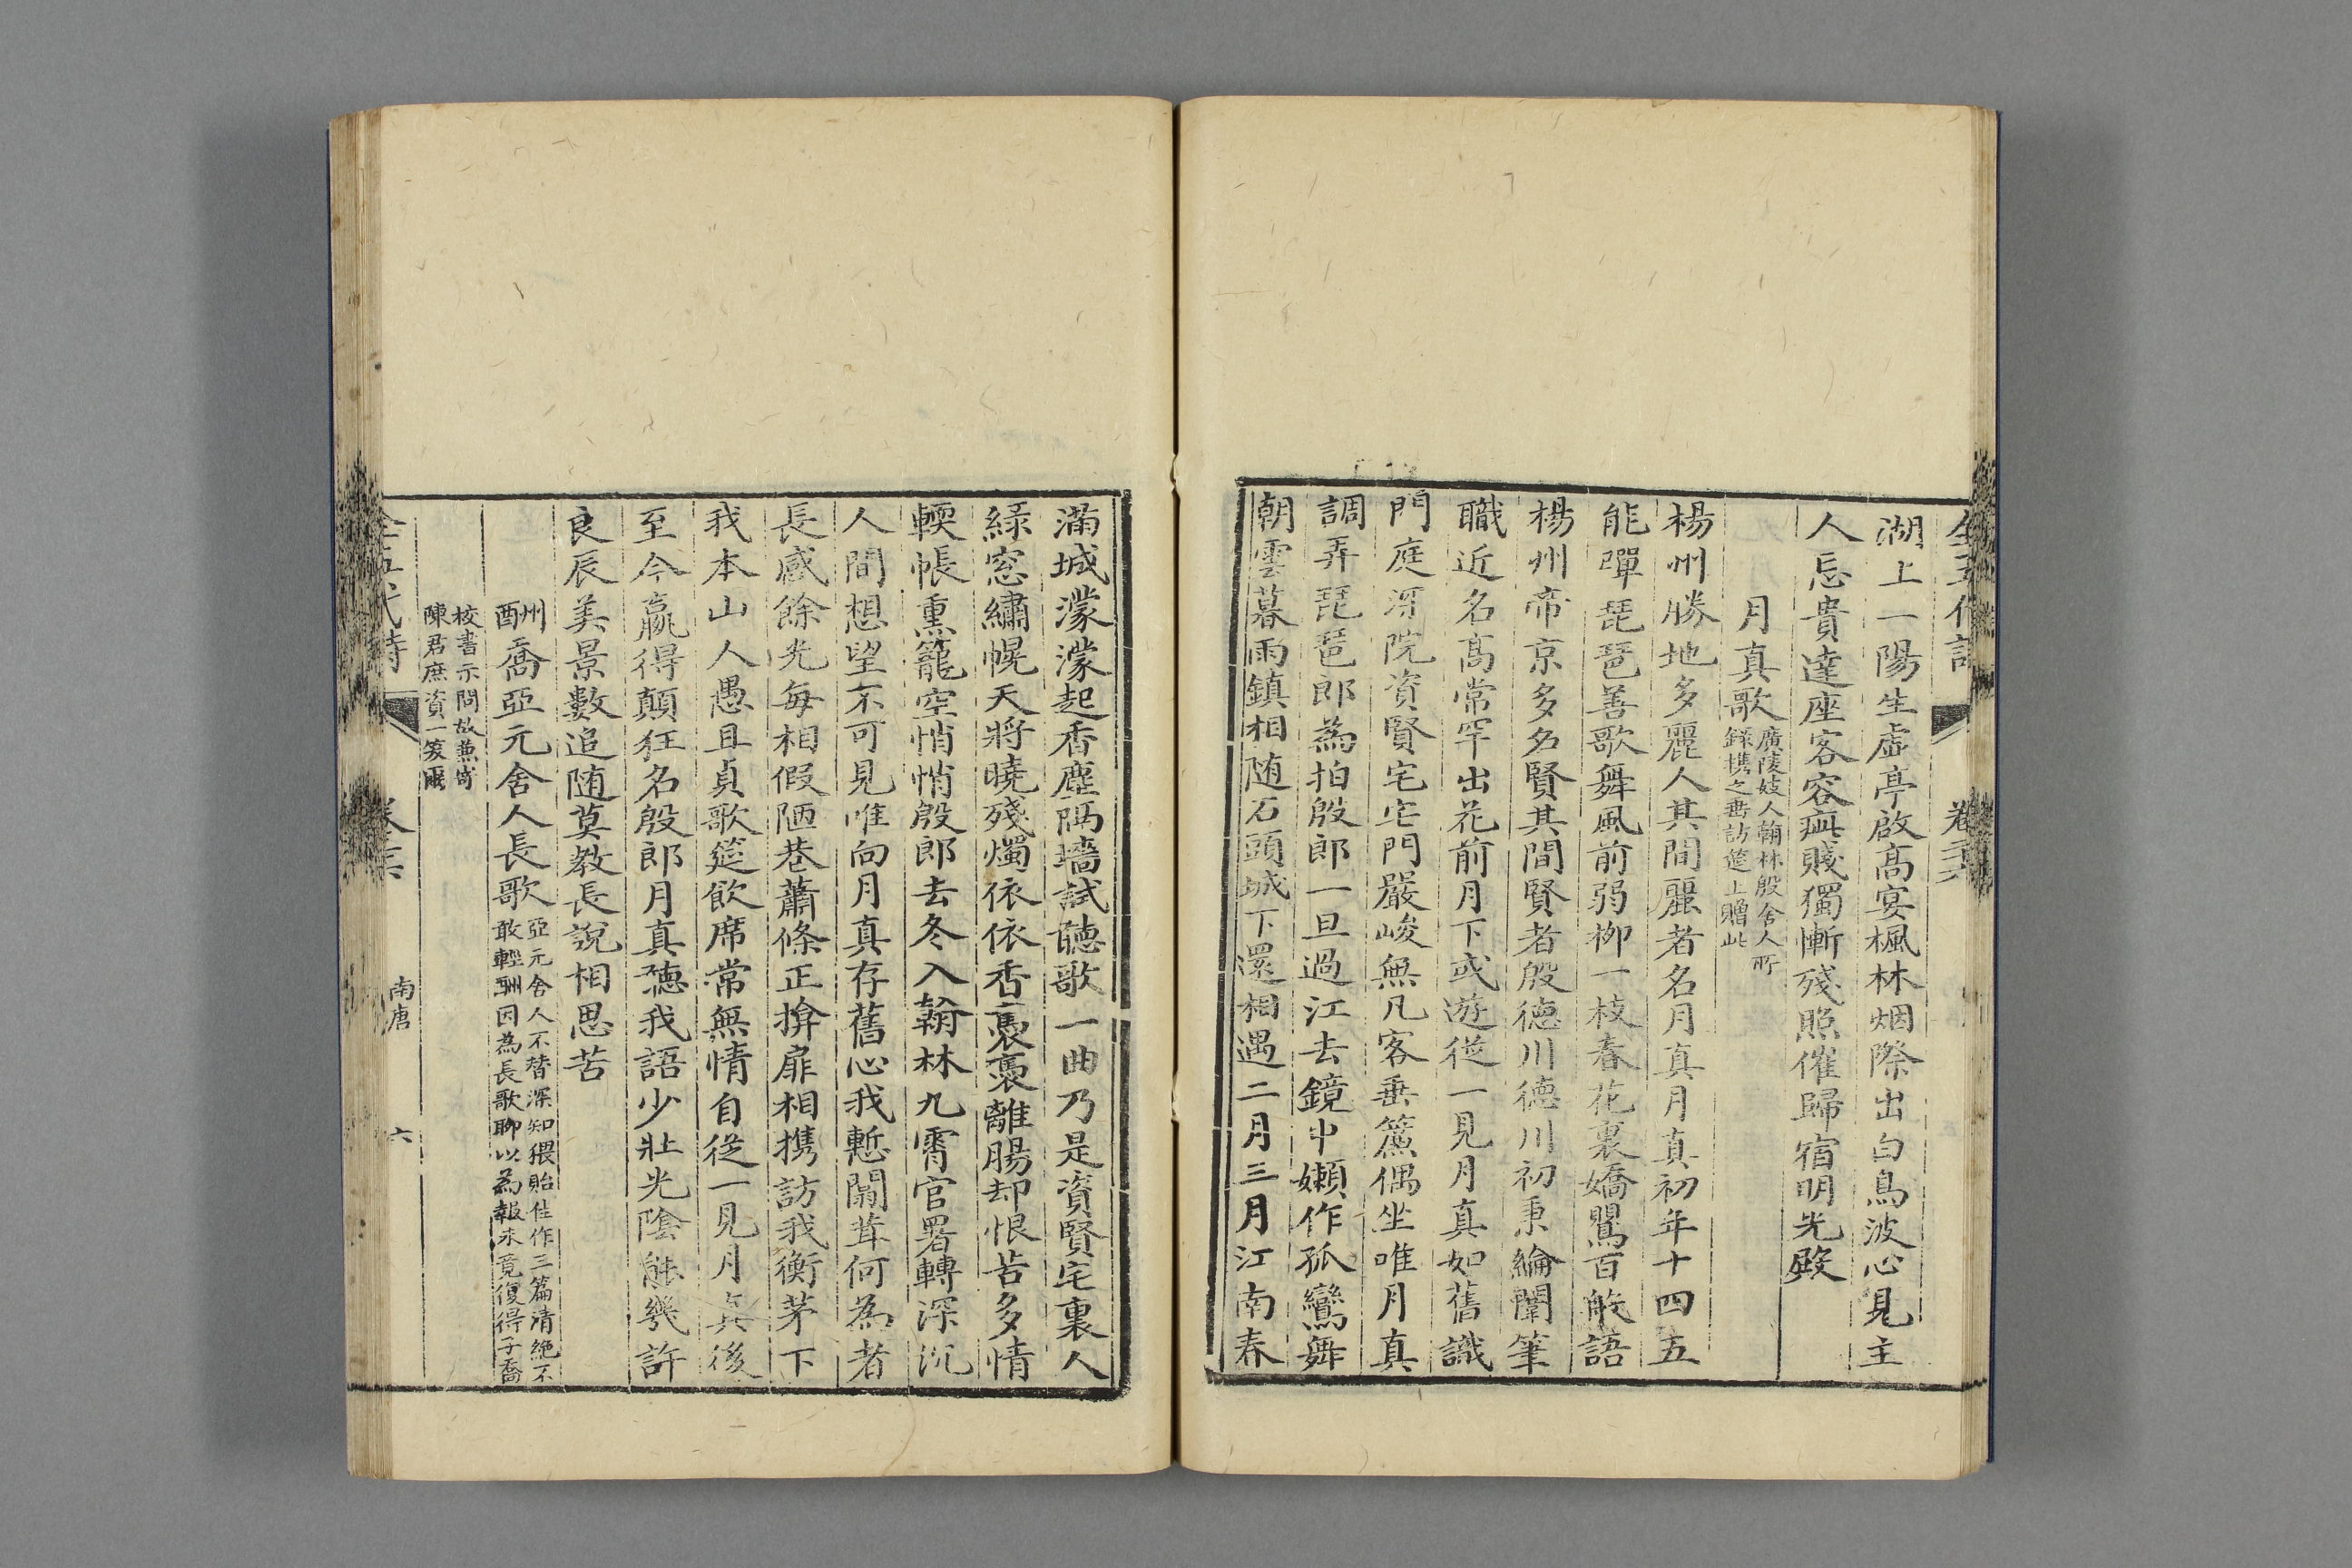 湖上一陽生虛亭啟高宴楓林烟際出白鳥波心見主
人忘貴達座客容疵賤獨慚殘照催歸宿明光殿
月真歌廣陵妓人翰林殷舍人所
錄携之垂訪筵上贈此
楊州勝地多麗人其間麗者名月真月真初年十四五
能彈琵琶善歌舞風前弱柳一枝春花裏嬌鶯百般語
楊州帝京多名賢其間賢者殷德川德川初秉綸闈筆
職近名高常罕出花前月下或遊從一見月真如舊識
門庭深院資賢宅宅門嚴峻無凡客垂簾偶坐唯月真
調弄琵琶郎為拍殷郎一旦過江去鏡中嬾作孤鸞舞
朝雲暮雨鎮相随石頭城下還相遇二月三月江南春
滿城濛濛起香塵隔墻試聽歌一曲乃是資賢宅裏人
綠窓繡幌天將曉殘燭依依香裊裊離腸却恨苦多情
軟帳熏籠空悄悄殷郎去冬入翰林九霄官署轉深沉
人間想望不可見唯向月真存舊心我慙闒茸何為者
長感餘光每相假陋巷蕭條正揜扉相携訪我衡茅下
我本山人愚且貞歌筵飲席常無情自從一見月真後
至今贏得顛狂名殷郎月真聽我語少壯光陰能幾許
良辰美景數追随莫教長說相思苦
酬喬亞元舍人長歌亞元舍人不替深知猥貽佳作三篇清絶不
敢輕酬因為長歌聊以為報未竟復得子喬
校書示問故兼寄
陳君庶資一笑爾
南唐
六